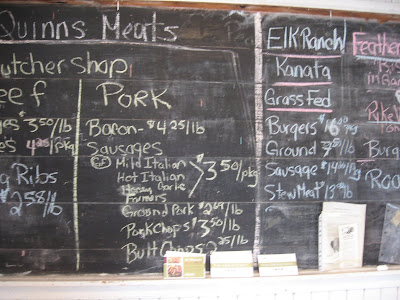 Quinns Meats
utcher Shop
eef
es $3.50/lb
s 4.25/pkg
g Ribs
$2.58/lb
PORK
Bacon - $4.25/lb
Sausages
GF Mild Italian
Hot Italian
Honey Garlic
Farmers
$3.50/pkg
Ground Pork $2.69/lb
Pork Chops $3.50/lb
Butt Chops 2.25/lb
Elk Ranch
Kanata
Grass Fed
Burgers $16.00/pkg
Ground
Sausage
Stew Meat
Feather
Burg